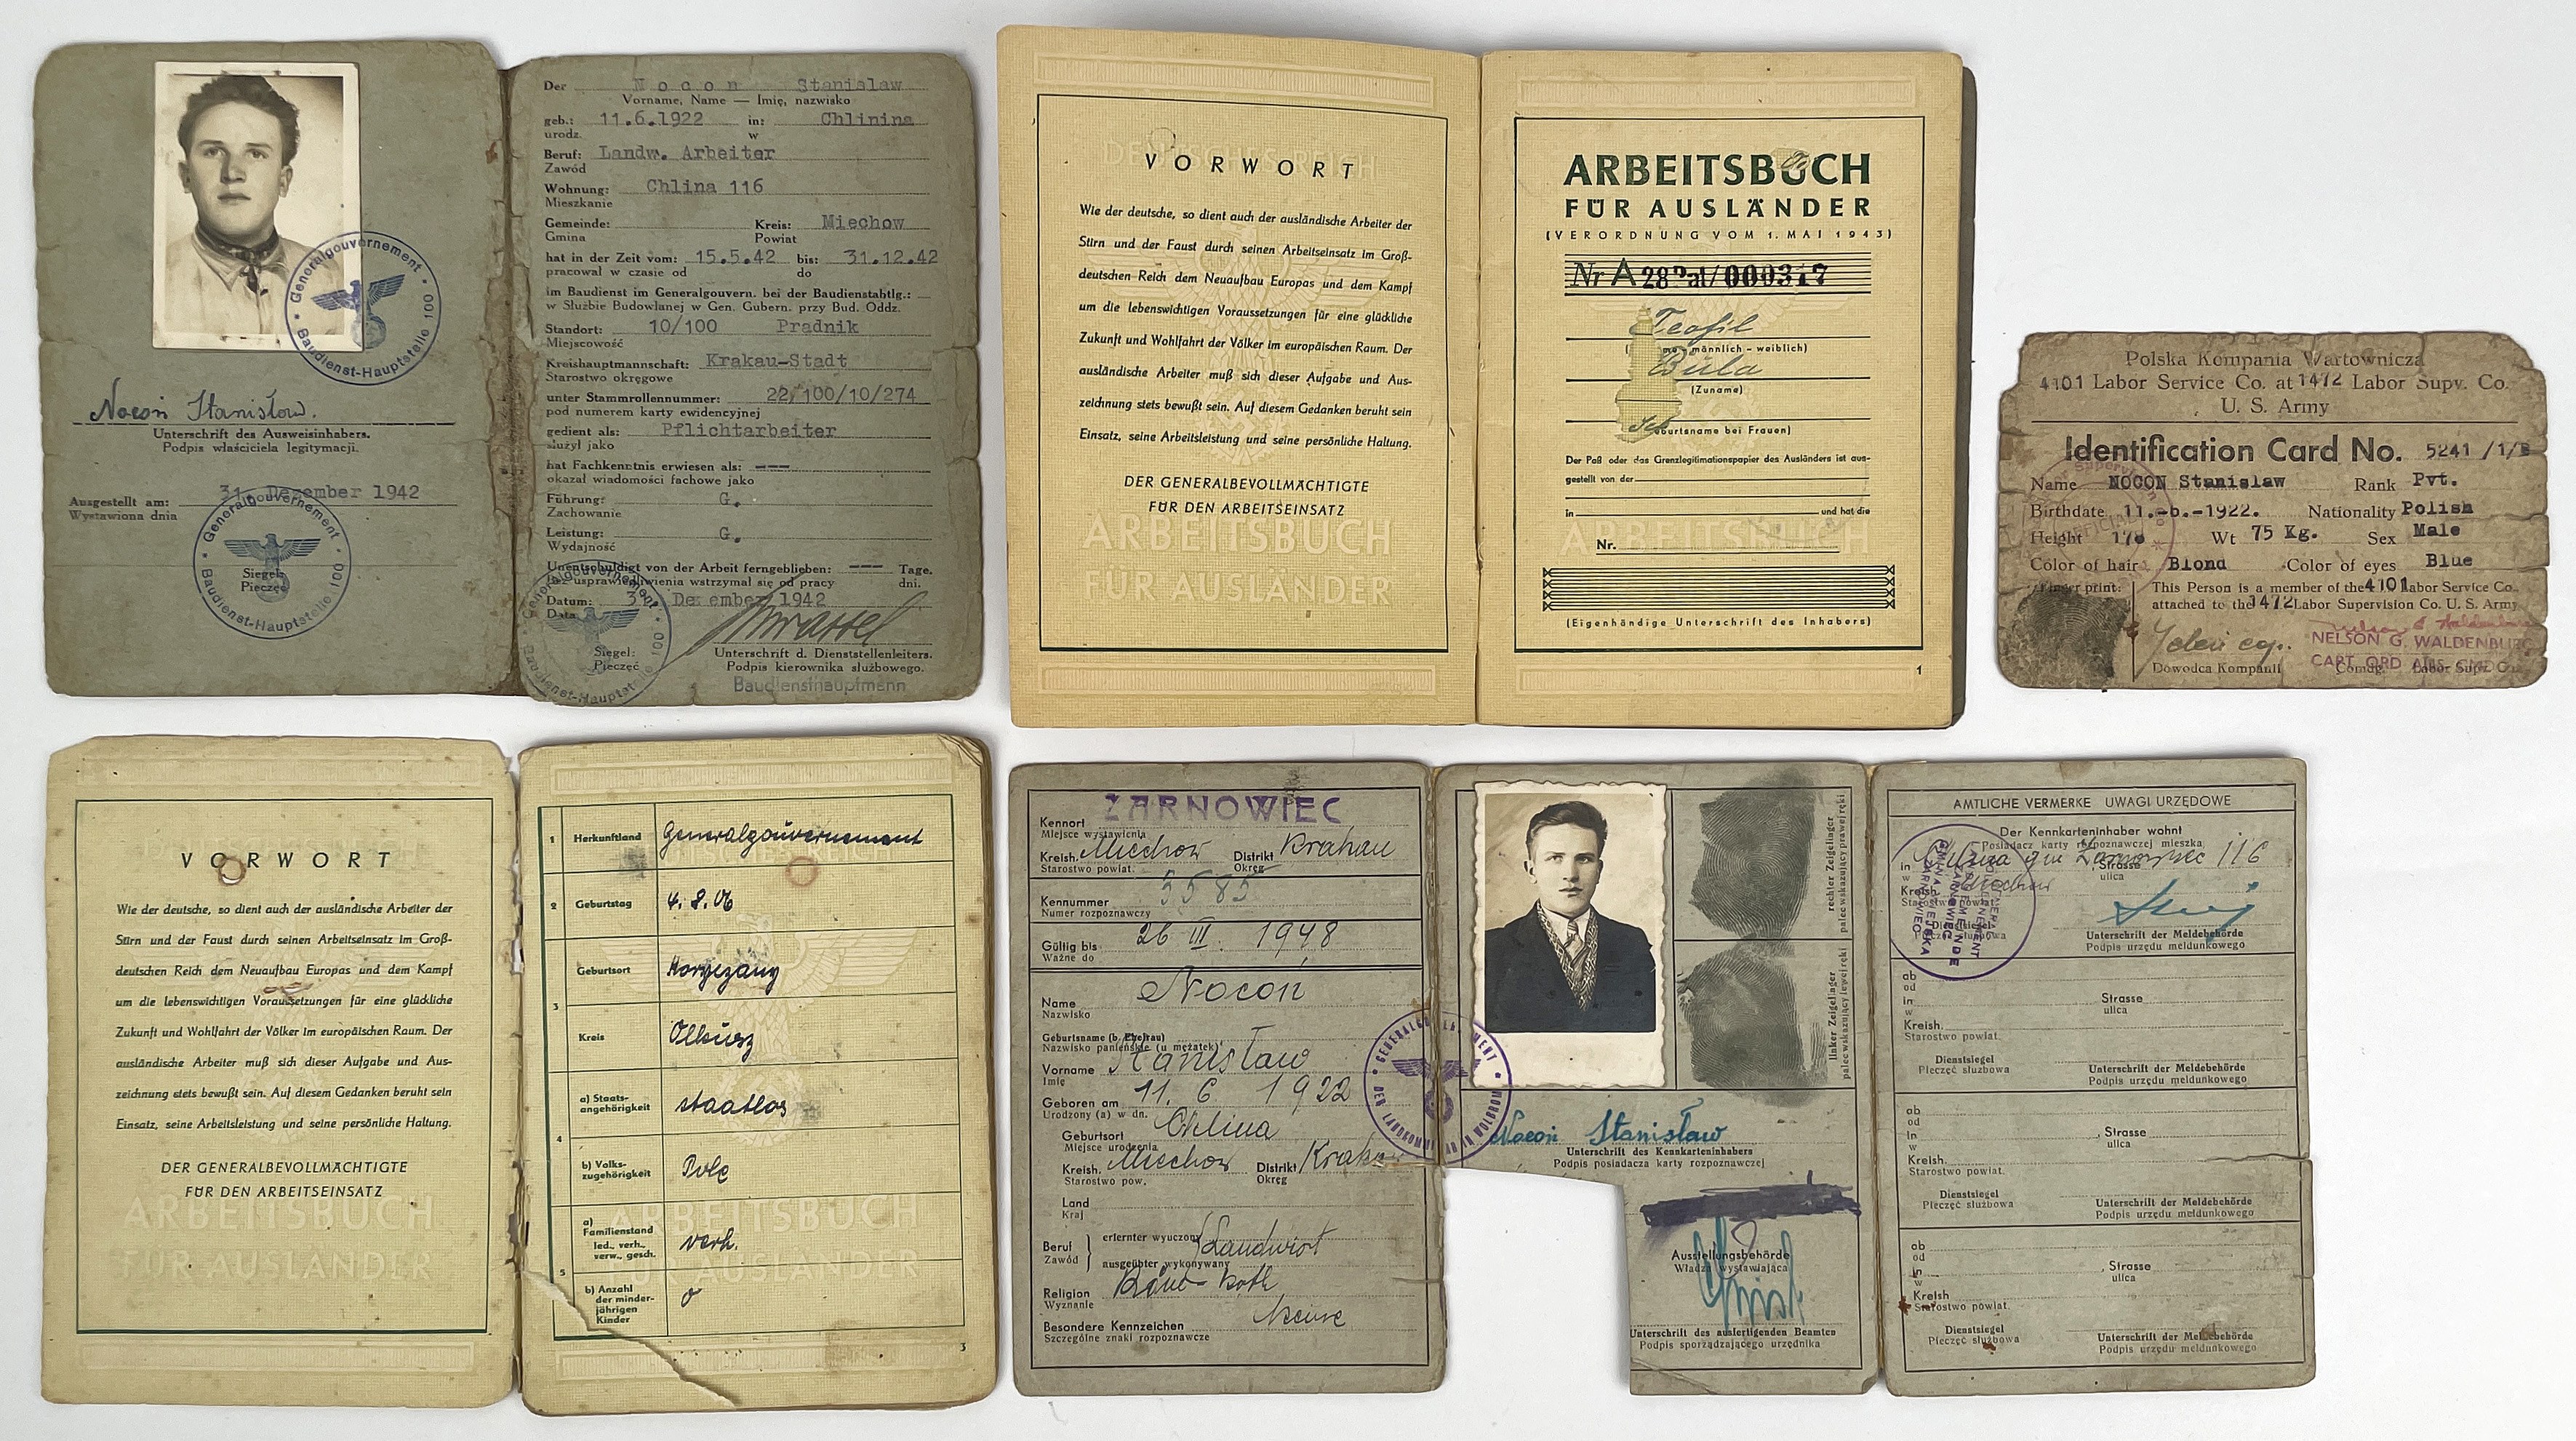 Der Nocon Stanislaw
Vorname, Name — Imię, nazwisko
geb.: 11.6.1922 in: Chlinina
urodz. w
Beruf: Landw. Arbeiter
Zawód
Wohnung: Chlina 116
Mieszkanie
Gemeinde: Kreis: Miechow
Gmina Powiat
hat in der Zeit vom: 15.5.42 bis: 31.12.42
pracował w czasie od do
im Baudienst im Generalgouvern. bei der Baudienstabtlg.:
w Służbie Budowlanej w Gen. Gubern. przy Bud. Oddz.
Standort: 10/100 Pradnik
Miejscowość
Kreishauptmannschaft: Krakau-Stadt
Starostwo okręgowe
unter Stammrollennummer: 22/100/10/274
pod numerem karty ewidencyjnej
gedient als: Pflichtarbeiter
służył jako
hat Fachkenntnis erwiesen als: ---
okazał wiadomości fachowe jako
Führung: G.
Zachowanie
Leistung: G.
Wydajność
Unentschuldigt von der Arbeit ferngeblieben: --- Tage.
Bez usprawiedliwienia wstrzymał się od pracy dni.
Datum: 31. Dezember 1942
Data
Siegel: Unterschrift d. Dienststellenleiters.
Pieczęć Podpis kierownika służbowego.
Baudiensthauptmann
Generalgouvernement
Baudienst-Hauptstelle 100
Nocoń Stanisław.
Unterschrift des Ausweisinhabers.
Podpis właściciela legitymacji.
Ausgestellt am: 31. Dezember 1942
Wystawiona dnia
Generalgouvernement
Baudienst-Hauptstelle 100
Siegel:
Pieczęć
Generalgouvernement
Baudienst-Hauptstelle 100
DEUTSCHES REICH
VORWORT
Wie der deutsche, so dient auch der ausländische Arbeiter der
Stirn und der Faust durch seinen Arbeitseinsatz im Groß-
deutschen Reich dem Neuaufbau Europas und dem Kampf
um die lebenswichtigen Voraussetzungen für eine glückliche
Zukunft und Wohlfahrt der Völker im europäischen Raum. Der
ausländische Arbeiter muß sich dieser Aufgabe und Aus-
zeichnung stets bewußt sein. Auf diesem Gedanken beruht sein
Einsatz, seine Arbeitsleistung und seine persönliche Haltung.
DER GENERALBEVOLLMÄCHTIGTE
FÜR DEN ARBEITSEINSATZ
ARBEITSBUCH
FÜR AUSLÄNDER
ARBEITSBUCH
FÜR AUSLÄNDER
(VERORDNUNG VOM 1. MAI 1943)
Nr A 28 /000317
Teofil
männlich - weiblich)
Bula
(Zuname)
(Geburtsname bei Frauen)
Der Paß oder das Grenzlegitimationspapier des Ausländers ist aus-
gestellt von der
in und hat die
ARBEITSBUCH
Nr.
(Eigenhändige Unterschrift des Inhabers)
1
Polska Kompania Wartownicza
4101 Labor Service Co. at 1472 Labor Supv. Co.
U. S. Army
Identification Card No. 5241 /1/
Name NOCON Stanislaw Rank Pvt.
Birthdate 11.-6.-1922. Nationality Polish
Height 170 Wt 75 Kg. Sex Male
Color of hair Blond Color of eyes Blue
Finger print: This Person is a member of the 4101 Labor Service Co.
attached to the 1472 Labor Supervision Co. U. S. Army
NELSON G. WALDENBURG
CAPT ORD
Dowodca Kompanii Comdg. Labor Supv. Co.
VORWORT
Wie der deutsche, so dient auch der ausländische Arbeiter der
Stirn und der Faust durch seinen Arbeitseinsatz im Groß-
deutschen Reich dem Neuaufbau Europas und dem Kampf
um die lebenswichtigen Voraussetzungen für eine glückliche
Zukunft und Wohlfahrt der Völker im europäischen Raum. Der
ausländische Arbeiter muß sich dieser Aufgabe und Aus-
zeichnung stets bewußt sein. Auf diesem Gedanken beruht sein
Einsatz, seine Arbeitsleistung und seine persönliche Haltung.
DER GENERALBEVOLLMÄCHTIGTE
FÜR DEN ARBEITSEINSATZ
ARBEITSBUCH
FÜR AUSLÄNDER
1 Herkunftland Generalgouvernement
2 Geburtstag 4.8.06
Geburtsort
3
Kreis
a) Staats-
angehörigkeit staatlos
4
b) Volks-
zugehörigkeit Pole
ARBEITSBUCH
a)
Familienstand
led., verh.,
verw., gesch. verh.
FÜR AUSLÄNDER
5
b) Anzahl
der minder-
jährigen
Kinder 0
3
ŻARNOWIEC
Kennort
Miejsce wystawienia
Kreish. Miechow Distrikt Krakau
Starostwo powiat. Okręg
Kennummer 3585
Numer rozpoznawczy
Gültig bis 26 III. 1948
Ważne do
Name Nocoń
Nazwisko
Geburtsname (b. Ehefrau)
Nazwisko panieńskie (u mężatek)
Vorname Stanisław
Imię
Geboren am 11. 6. 1922
Urodzony (a) w dn.
Geburtsort Chlina
Miejsce urodzenia
Kreish. Miechow Distrikt Krakau
Starostwo pow. Okręg
Land
Kraj
Beruf erlernter wyuczony Landwirt
Zawód ausgeübter wykonywany
Religion Röm-kath
Wyznanie
Besondere Kennzeichen keine
Szczególne znaki rozpoznawcze
rechter Zeigefinger
palec wskazujący prawej ręki
linker Zeigefinger
palec wskazujący lewej ręki
Nocoń Stanisław
Unterschrift des Kennkarteninhabers
Podpis posiadacza karty rozpoznawczej
Ausstellungsbehörde
Władza wystawiająca
Unterschrift des ausfertigenden Beamten
Podpis sporządzającego urzędnika
AMTLICHE VERMERKE UWAGI URZĘDOWE
Der Kennkarteninhaber wohnt
Posiadacz karty rozpoznawczej mieszka
in Chlina gm Żarnowiec 116 Strasse
w ulica
Kreish. Miechow
Starostwo powiat.
Dienstsiegel Unterschrift der Meldebehörde
Pieczęć służbowa Podpis urzędu meldunkowego
ab
od
in Strasse
w ulica
Kreish.
Starostwo powiat.
Dienstsiegel Unterschrift der Meldebehörde
Pieczęć służbowa Podpis urzędu meldunkowego
ab
od
in Strasse
w ulica
Kreish.
Starostwo powiat.
Dienstsiegel Unterschrift der Meldebehörde
Pieczęć służbowa Podpis urzędu meldunkowego
ab
od
in Strasse
w ulica
Kreish
Starostwo powiat.
Dienstsiegel Unterschrift der Meldebehörde
Pieczęć służbowa Podpis urzędu meldunkowego